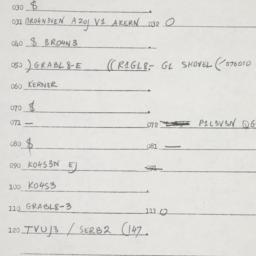 030 $
031 BROHN3VEN AZOJ V1 AKERN 032 O
040 $ BROHN3
050 ) GRABL8-E ((R1GL8- G1 SHOVEL (/070010
060 KERNER
070 $
071 — 072 P1L3V3N
080 $ 081 —
090 KO4S3N EJ
100 KO4S3
110 GRABL8-3 111 O
120 TVUJ3 / SERB2 (147.